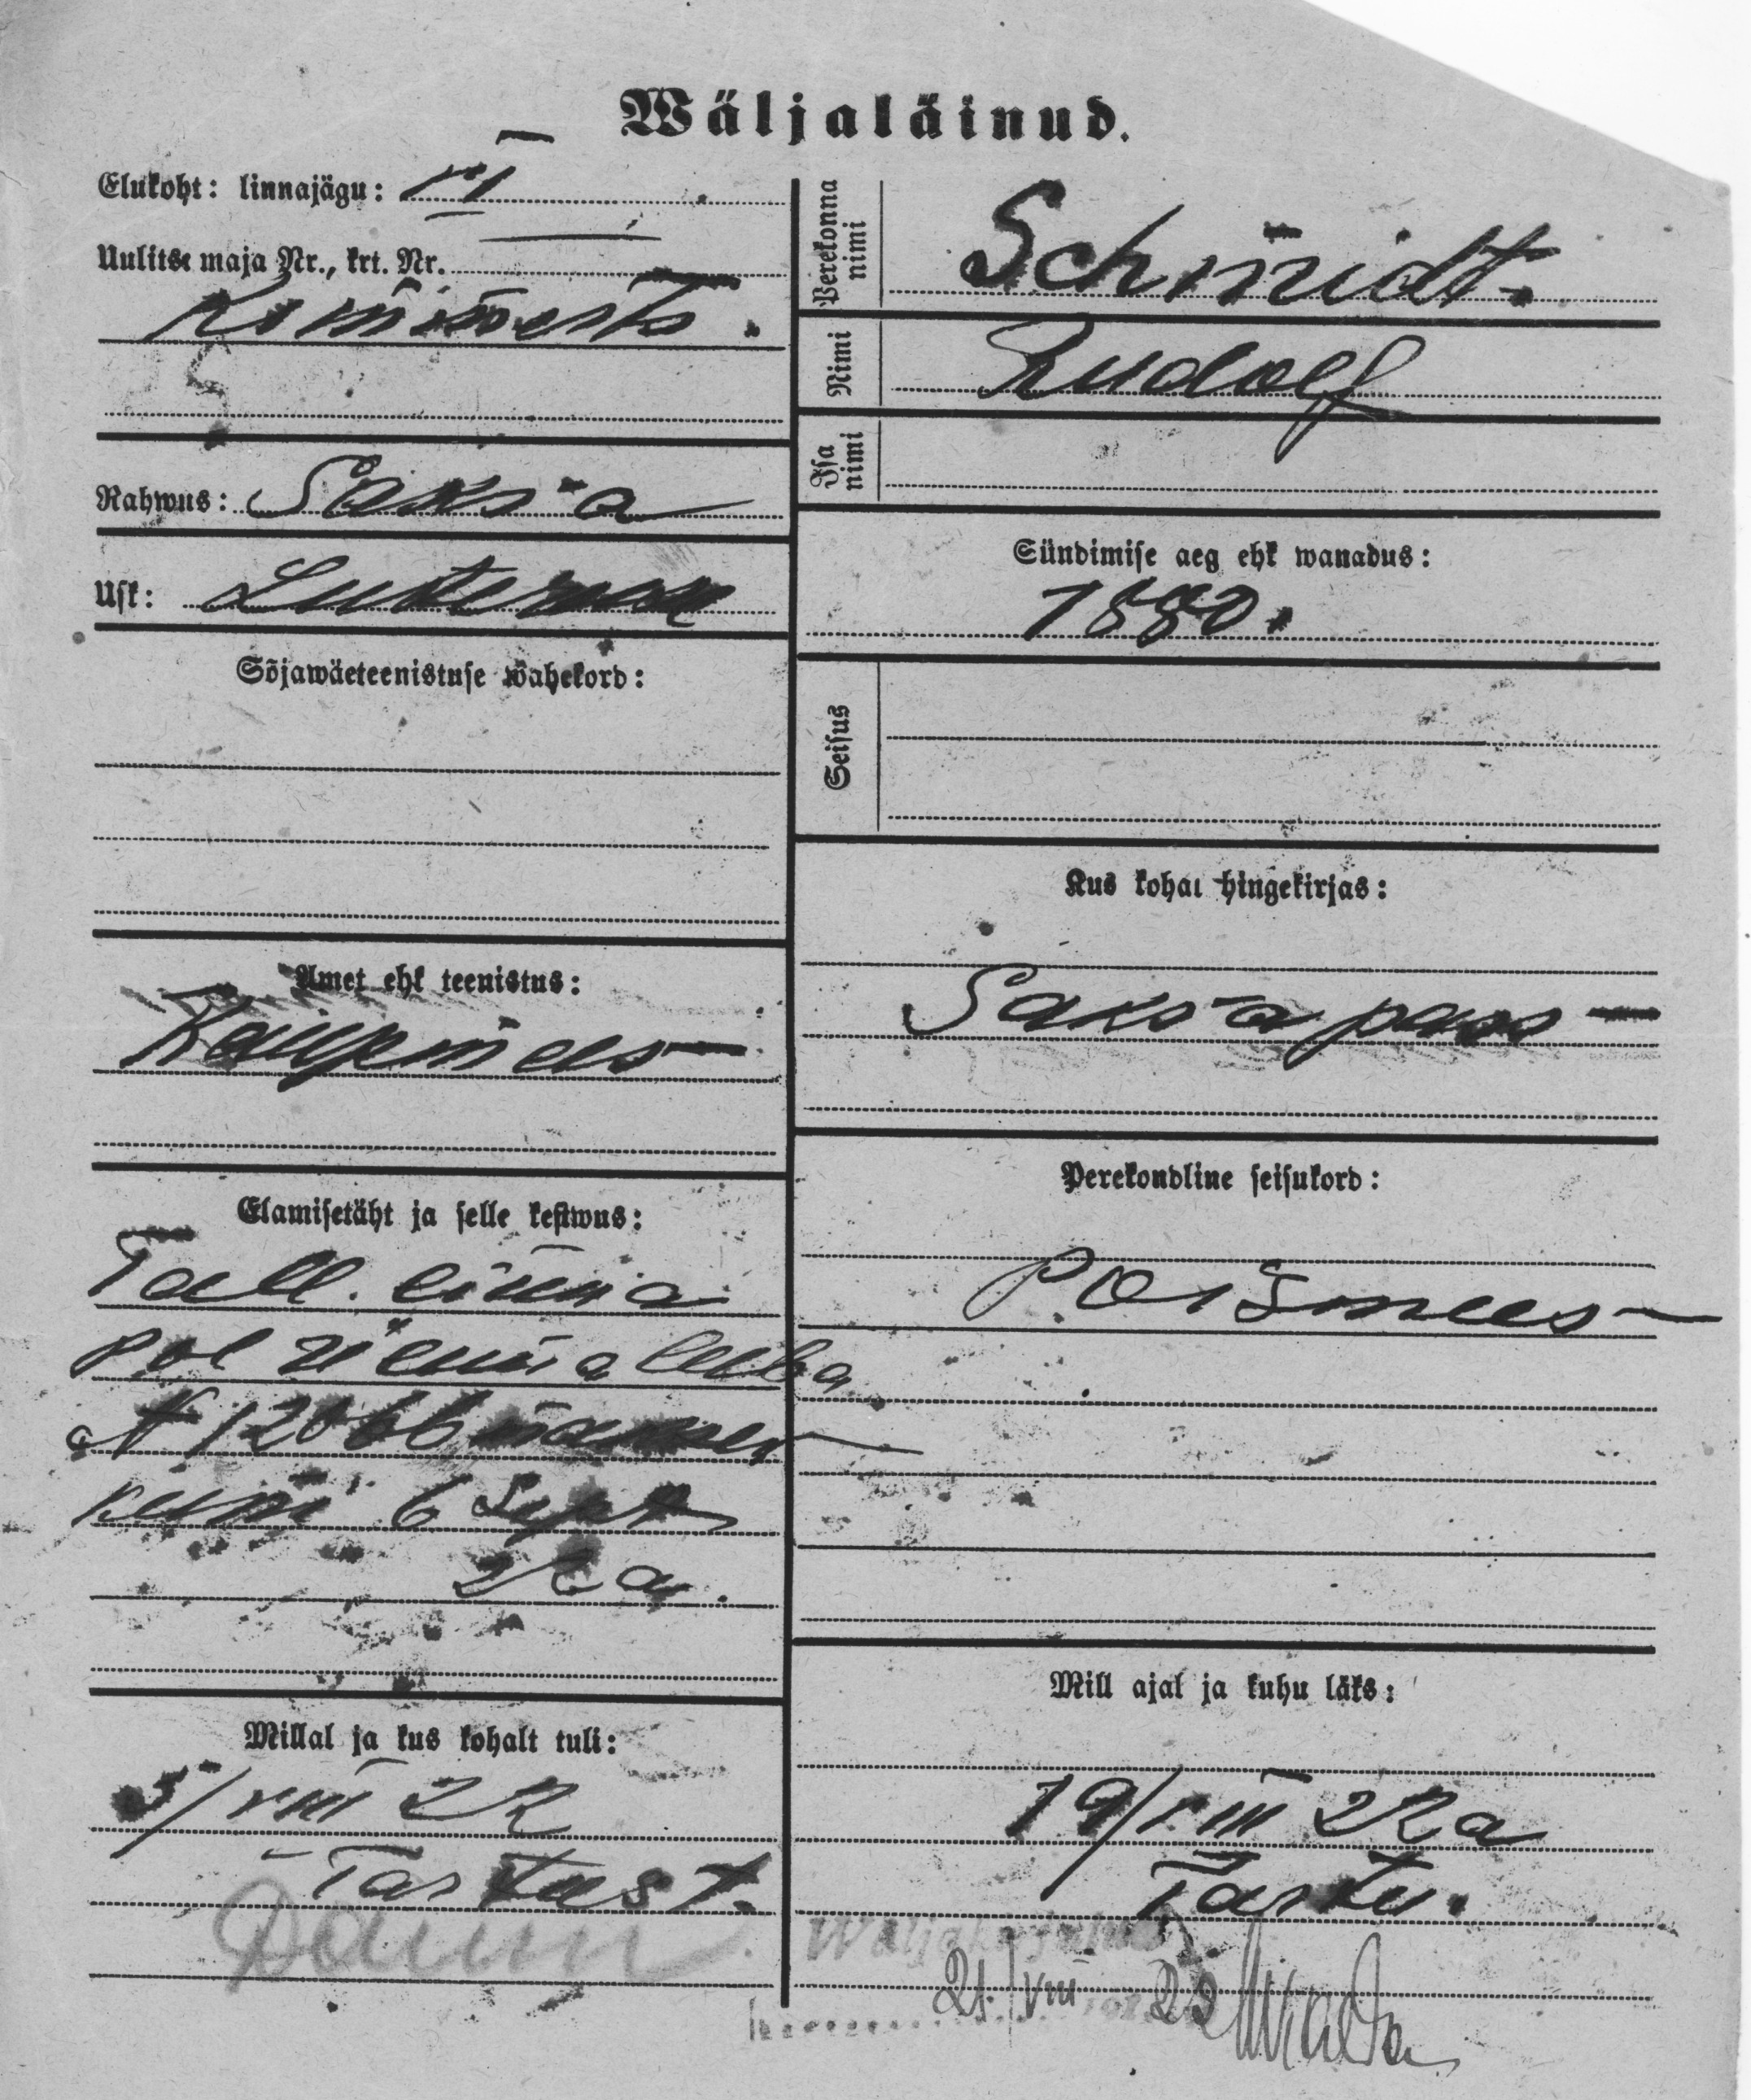 Wäljaläinud.
Elukoht: linnajägu: VI
Uulitse maja Nr., krt. Nr.
Rahwus: Saksa
Usk: Luteruse
Sõjawäeteenistuse wahekord:
Amet ehk teenistus:
Kaupmees
Elamisetäht ja selle kestwus:
Tall. linna
politsei luba
№ 12066 maksev
kuni 6 Sept
22 a.
Millal ja kus kohalt tuli:
5/VIII 22
Tartust.
Perekonna nimi
Schmidt.
Nimi
Rudolf
Isa nimi
Sündimise aeg ehk wanadus:
1880.
Seisus
Kus kohal hingekirjas:
Saksa pass
Perekondline seisukord:
Poismees
Mill ajal ja kuhu läks:
19/VIII 22 a
Tartu.
Wäljakirjutud
21/VIII 22